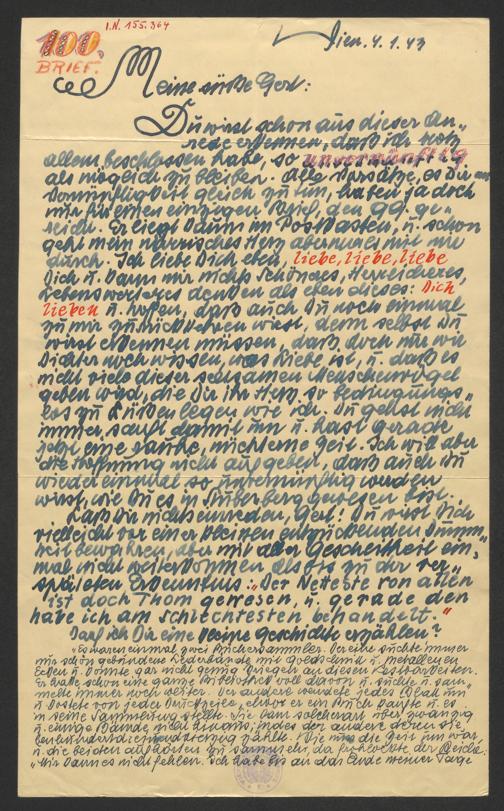 I.N. 155.364
100.
BRIEF.
Wien. 4.1.43
Meine süße Gert:
Du wirst schon aus dieser An-
rede erkennen, daß ich trotz
allem beschlossen habe, so unvernünftig
als möglich zu bleiben. Alle Vorsätze, es Dir an
Vernünftigkeit gleich zu tun, haben ja doch
nur für einen einzigen Brief, den 99. ge-
reicht. Er liegt kaum im Postkasten, u. schon
geht mein närrisches Herz abermals mit mir
durch. Ich liebe Dich eben, liebe, liebe, liebe
Dich u. kann mir nichts Schöneres, Herrlicheres,
Lebenswerteres denken als eben dieses: Dich
lieben u. hoffen, daß auch Du noch einmal
zu mir zurückkehren wirst, denn selbst Du
wirst erkennen müssen, daß doch nur wir
Dichter noch wissen, was Liebe ist, u. daß es
nicht viele dieser seltsamen Menschenvögel
geben wird, die Dir ihr Herz so bedingungs-
los zu Füßen legen wie ich. Du gehst nicht
immer sanft damit um u. hast gerade
jetzt eine rauhe, nüchterne Zeit. Ich will aber
die Hoffnung nicht aufgeben, daß auch Du
wieder einmal so unvernünftig werden
wirst, wie Du es in Stuberberg gewesen bist.
Laß Dir nichts einreden, Gert! Du wirst Dich
vielleicht vor einer kleinen entzückenden Dumm-
heit bewahren, aber mit aller Gescheitheit ein-
mal nicht weiterkommen als bis zu der ver-
späteten Erkenntnis: "Der Netteste von allen
ist doch Thom gewesen, u. gerade den
habe ich am schlechtesten behandelt."
Darf ich Dir eine kleine Geschichte erzählen?
Es waren einmal zwei Büchersammler. Der eine suchte immer
nur schön gebundene Lederbände mit Goldschnitt u. metallenen
Ecken u. konnte gar nicht genug kriegen an diesen Kostbarkeiten.
Er hatte schon eine ganze Bibliothek voll davon u. suchte u. sam-
melte immer noch weiter. Der andere wendete jedes Blatt um
u. kostete von jeder Druckzeile, ehe er ein Buch kaufte u. es
in seine Sammlung stellte. Die kam solcherart über zwanzig
u. einige Bände nicht hinaus, indes der andere deren
u. die beiden aufhörten zu sammeln, da frohlockte der Reiche:
"Mir kann es nicht fehlen. Ich habe bis an das Ende meiner Tage